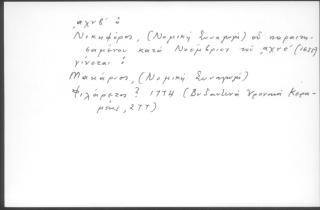 ͵αχνβʹ ὁ
Νικηφόρος, (Νομικὴ Συναγωγή) οὗ παραιτη-
σαμένου κατὰ Νοέμβριον τοῦ ͵αχνεʹ (1655)
γίνεται ὁ
Μακάριος, (Νομικὴ Συναγωγή)
Φιλάρετος? 1774 (Βυζαντινὰ Χρονικὰ Κερα-
μέως, 277)